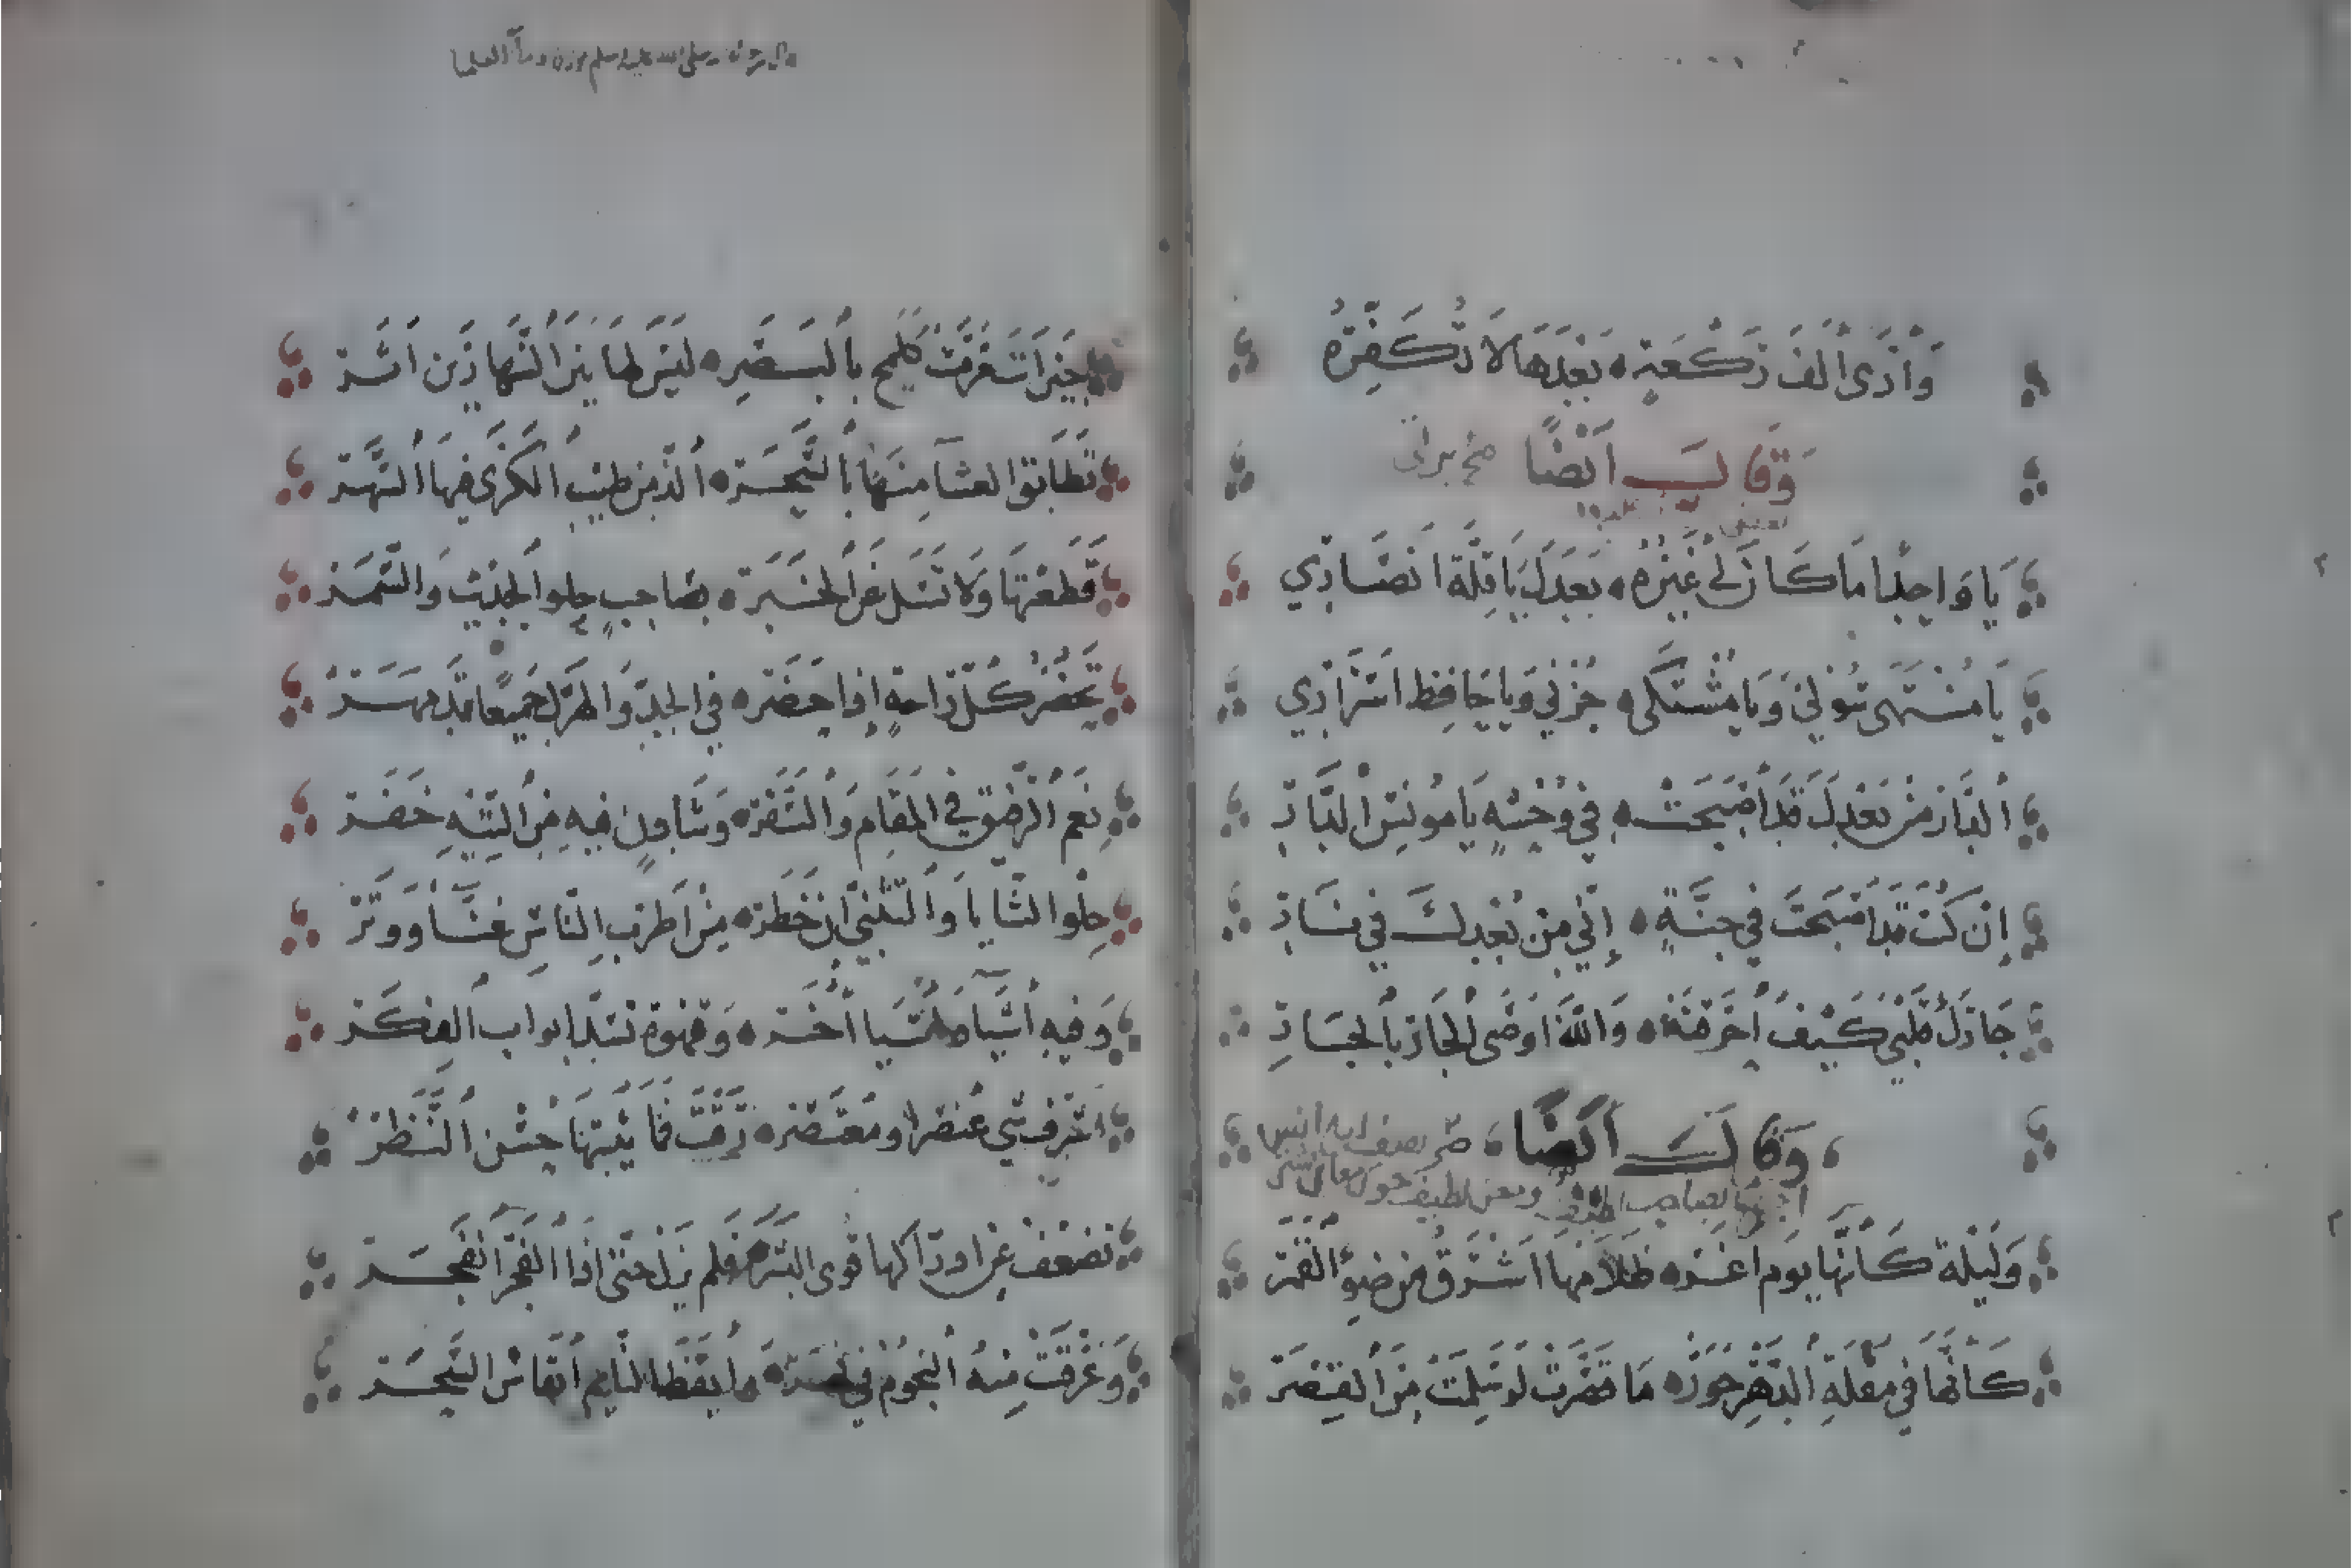 وَأَرَى أَلْفَ رَكْعَةٍ بَعْدَهَا لَا تُكَفِّرُهُ
وَقَالَ أَيْضًا
يَا وَاحِدًا مَا كَانَ لِي غَيْرُهُ بَعْدَكَ يَا قِلَّةَ أَنْصَارِي
يَا مُنْتَهَى سُؤْلِي وَيَا مُشْتَكَى حُزْنِي وَيَا حَافِظَ أَسْرَارِي
الدَّارُ مِنْ بَعْدِكَ قَدْ أَصْبَحَتْ فِي وَحْشَةٍ يَا مُونِسَ الدَّارِ
إِنْ كُنْتَ قَدْ أَصْبَحْتَ فِي جَنَّةٍ إِنِّي مِنْ بَعْدِكَ فِي نَارِ
جَارُكَ قَلْبِي كَيْفَ أَحْرَقْتَهُ وَاللَّهُ أَوْصَى الْجَارَ بِالْجَارِ
وَقَالَ أَيْضًا
وَلَيْلَةٍ كَأَنَّهَا يَوْمٌ أَغَرّ ظَلَامُهَا أَشْرَقُ مِنْ ضَوْءِ الْقَمَرْ
كَأَنَّهَا فِي مُقْلَةِ الدَّهْرِ حَوَرْ مَا قَصُرَتْ لَوْ سَلِمَتْ مِنَ الْقِصَرْ
حِينَ أَتَتْ مَرَّتْ كَلَمْحٍ بِالْبَصَرِ لَيْسَ لَهَا بَيْنَ النَّهَارَيْنِ أَثَرْ
تَطَابَقَ الْعِشَا مِنْهَا بِالسَّحَرْ أَلَذُّ مِنْ طِيبِ الْكَرَى فِيهَا السَّهَرْ
قَطَعْتُهَا وَلَا تَسَلْ عَنِ الْخَبَرْ بِصَاحِبٍ حُلْوِ الْحَدِيثِ وَالسَّمَرْ
تَحْضُرُ كُلُّ رَاحَةٍ إِذَا حَضَرْ فِي الْجِدِّ وَالْهَزْلِ جَمِيعًا قَدْ مَهَرْ
نِعْمَ الرَّفِيقُ فِي الْمُقَامِ وَالسَّفَرْ وَشَادِنٍ فِيهِ مِنَ التِّيهِ خَفَرْ
حُلْوِ الثَّنَايَا وَالتَّثَنِّي إِنْ خَطَرْ مِنْ أَطْرَبِ النَّاسِ غِنَاءً وَوَتَرْ
وَفِيهِ أَشْيَاءُ وَأَشْيَا أُخَرْ وَقَهْوَةٍ تَسُدُّ أَبْوَابَ الْفِكَرْ
رَقَّتْ فَمَا يُثْبِتُهَا حُسْنُ النَّظَرْ
تَضْعُفُ عَنْ إِدْرَاكِهَا قُوَى الْبَشَرْ فَلَمْ نَزَلْ حَتَّى إِذَا الْفَجْرُ انْفَجَرْ
وَغَرِقَتْ مِنْهُ النُّجُومُ فِي نَهَرْ وَأَيْقَظَ النَّائِمَ أَنْفَاسُ السَّحَرْ